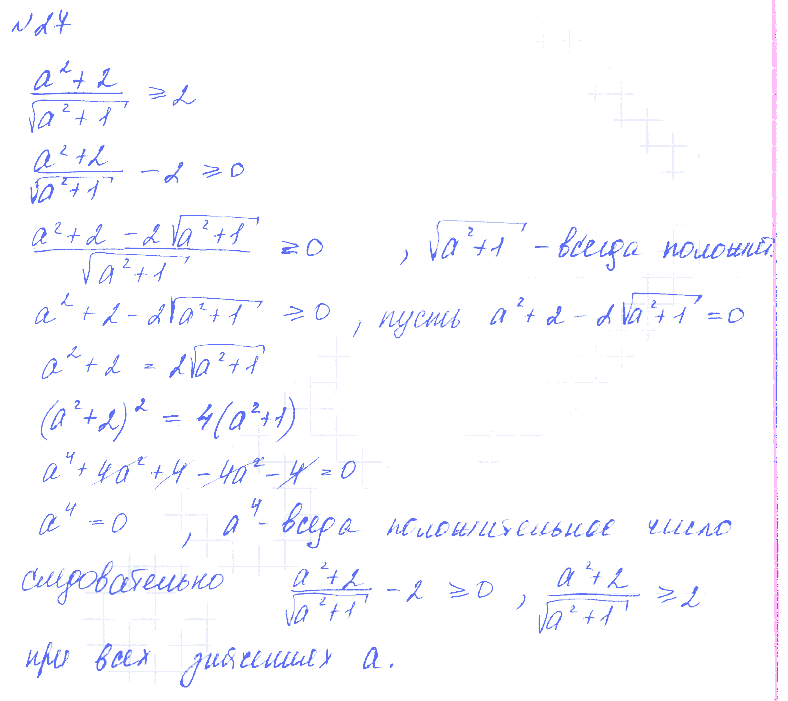 №27
(a²+2)/√(a²+1) ≥ 2
(a²+2)/√(a²+1) - 2 ≥ 0
(a²+2 - 2√(a²+1))/√(a²+1) ≥ 0 , √(a²+1) - всегда положит.
a² + 2 - 2√(a²+1) ≥ 0 , пусть a² + 2 - 2√(a²+1) = 0
a² + 2 = 2√(a²+1)
(a²+2)² = 4(a²+1)
a⁴ + 4a² + 4 - 4a² - 4 = 0
a⁴ = 0 , a⁴ - всегда положительное число
следовательно (a²+2)/√(a²+1) - 2 ≥ 0 , (a²+2)/√(a²+1) ≥ 2
при всех значениях a.